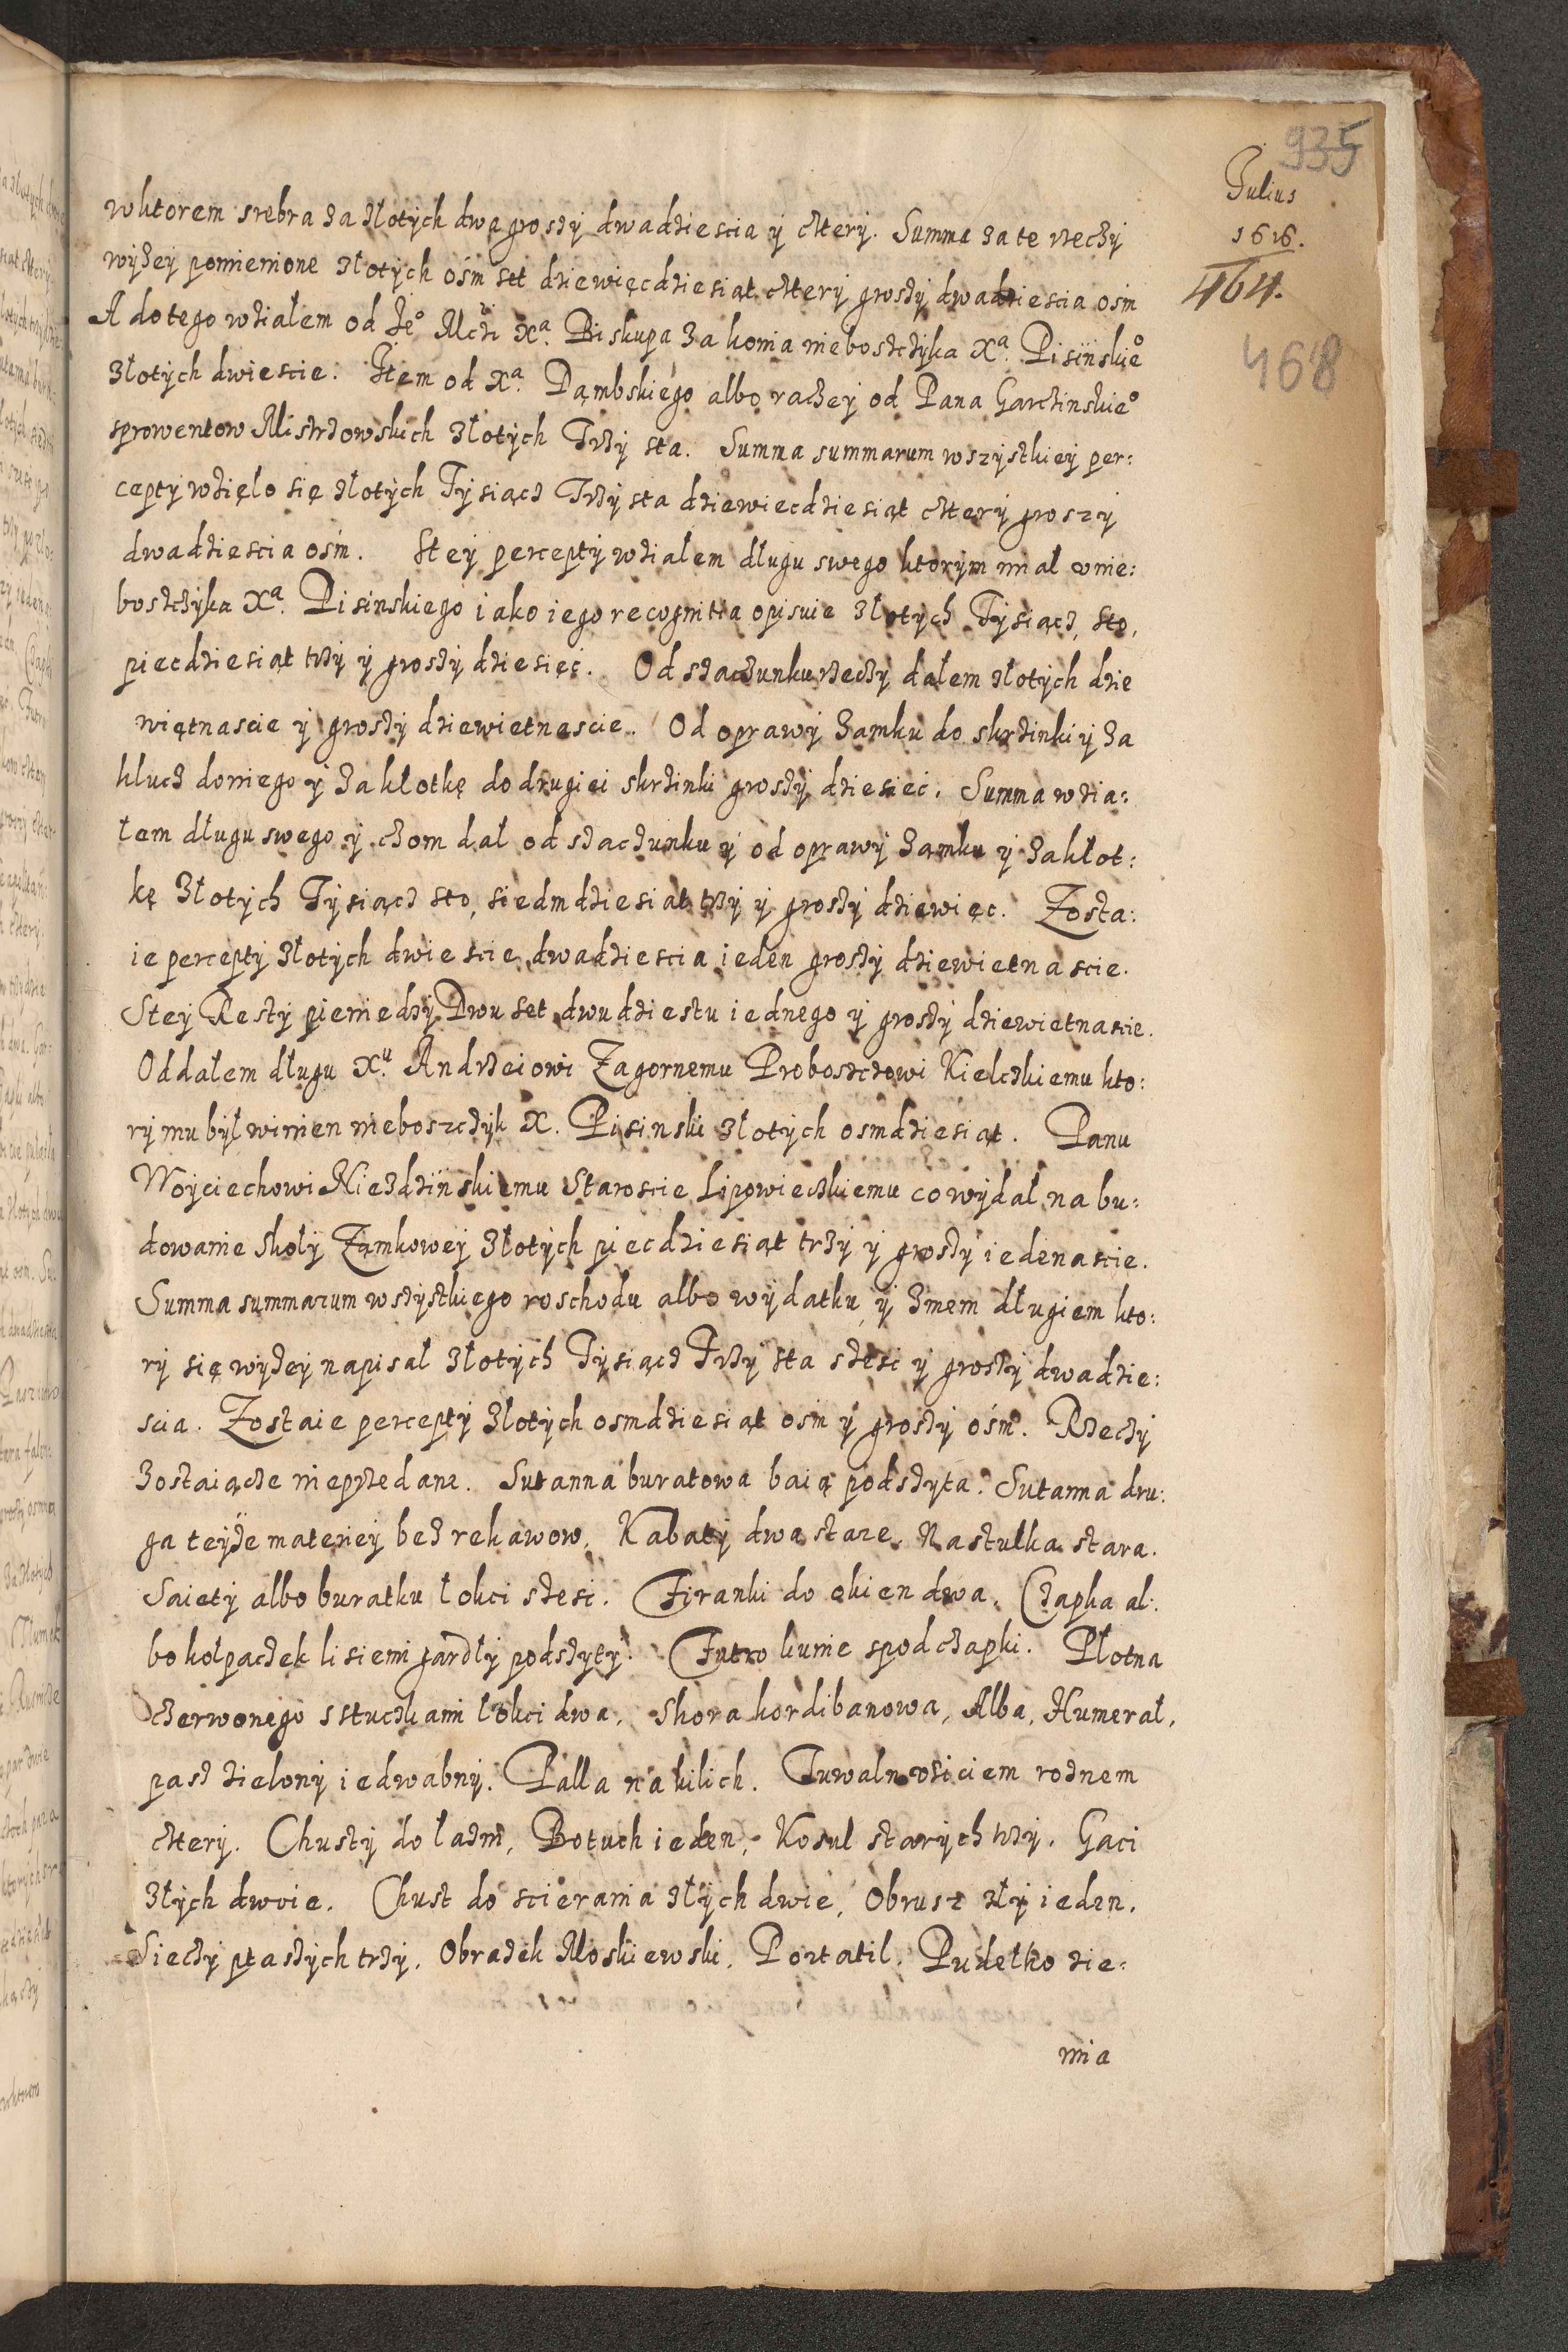 935
Julius
1616.
464.
468
wktorem srebra za złotych dwa groszy dwadziescia y cztery. Summa za te rzeczy
wyzey pomienione złotych ośm set dziewięcdziesiąt cztery groszy dwadziescia ośm
A do tego wziałem od Je͏º Mczi Xª. Biskupa za konia nieboszczyka Xª. Pisinskieº
złotych dwiescie. Item od Xª. Dąmbskiego albo raczey od Pana Garczinskieº
sprowentow Mistrzowskich złotych Trzy sta. Summa summarum wszystkiey per:
cepty wzięło się złotych Tysiącz Trzy sta dziewiecdziesiąt cztery groszy
dwadziescia ośm. Stey percepty wziałem długu swego ktorym miał v nie:
boszczyka Xª. Pisinskiego iako iego recognitia opisuie złotych Tysiącz, sto,
piecdziesiąt trzy y groszy dziesięć. Od szaczunku rzeczy dałem złotych dzie
więtnascie y groszy dziewietnascie. Od oprawy zamku do skrzinki y za
klucz do niego y za kłotkę do drugiei skrzinki groszy dziesieć. Summa wzia:
łem długu swego y czom dał od szaczunku y od oprawy zamku y za kłot:
kę złotych Tysiącz sto, siedmdziesiąt trzy y groszy dziewięc. Zosta:
ie percepty złotych dwiescie dwadziescia ieden groszy dziewietnascie.
Stey Resty pieniedzy Dwu set dwudziestu iednego y groszy dziewietnascie.
Oddałem długu Xᵘ. Andrzeiowi Zagornemu Proboszczowi Kielczkiemu kto:
ry mu był winien nieboszczyk X. Pisinski złotych osmdziesiąt. Panu
Woyciechowi Niezdzinskiemu Staroscie Lipowieczkiemu co wydał na bu:
dowanie Skoły Zamkowey złotych piecdziesiąt trzy y groszy iedenascie.
Summa summarum wszystkiego roschodu albo wydatku y zmem długiem kto:
ry się wyzey napisał złotych Tysiącz Trzy sta szesc y groszy dwadzie:
scia. Zostaie percepty złotych osmdziesiąt ośm y groszy ośm. Rzeczy
zostaiącze nieprzedane. Sutanna buratowa baią podszyta. Sutanna dru:
ga teyze materiey bez rekawow, Kabaty dwa stare. Kastułka stara.
Saiety albo buratku łokci szesc. Firanki do okien dwa. Czapka al:
bo kołpaczek lisiemi gardły podszyty. Futro kunie spod czapki. Płotna
czerwonego sstuczkami łokci dwa. Skora kordibanowa, Alba, Humerał,
pasz zielony iedwabny. Palla na kilich. Tuwaln vsiciem roznem
cztery. Chusty do łazni, Botuch ieden, Kosul starych trzy. Gaci
złych dwoie. Chust do scierania złych dwie, Obrusz zły ieden.
Sieczy ptaszych trzy. Obrazek Moskiewski. Portatil. Pudełko zie:
mia